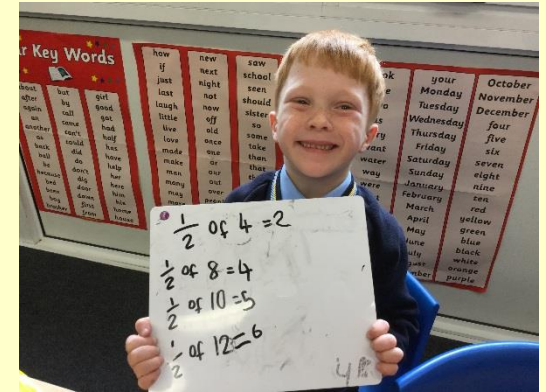 r Key Words
about
after
again
an
another
as
back
ball
be
because
bed
been
boy
brother
but
by
call
came
can't
could
did
do
don't
dig
door
down
first
from
girl
good
got
had
half
has
have
help
her
here
him
his
home
house
how
if
just
last
laugh
little
live
love
made
make
man
many
may
more
new
next
night
not
now
off
old
once
one
or
our
out
over
saw
school
seen
should
sister
so
some
take
than
that
water
way
were
your
Monday
Tuesday
Wednesday
Thursday
Friday
Saturday
Sunday
January
February
March
April
May
June
July
October
November
December
four
five
six
seven
eight
nine
ten
red
yellow
green
blue
black
white
orange
purple
1/2 of 4 =2
1/2 of 8 =4
1/2 of 10 =5
1/2 of 12=6